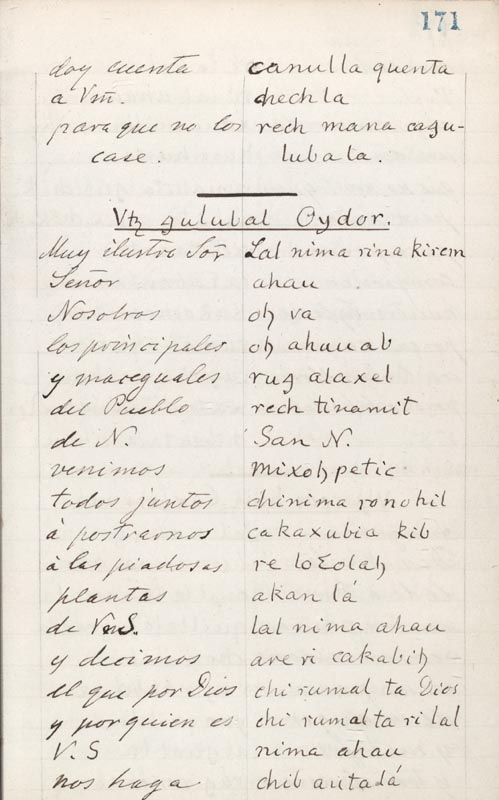 171
doy cuenta canulla quenta
a Vm̃. chechla
para que no los rech mana cazu-
case. lubata.
Vtꜩ gulubal Oydor.
Muy ilustre Sõr Lal nima rina kirem
Señor ahau
Nosotros oꜧ va
los principales oꜧ ahauab
y maceguales ruꜫ alaxel
del Pueblo rech tinamit
de N. San N.
venimos mixoꜧpetic
todos juntos chinima ronohil
á postrarnos cakaxubia kib
á las piadosas re loꜫolaꜧ
plantas akan lá
de VmS. lal nima ahau
y decimos are ri cakabiꜧ
el que por Dios chi rumal ta Dios
y por quien es chi rumal ta ri lal
V. S nima ahau
nos haga chib autadá